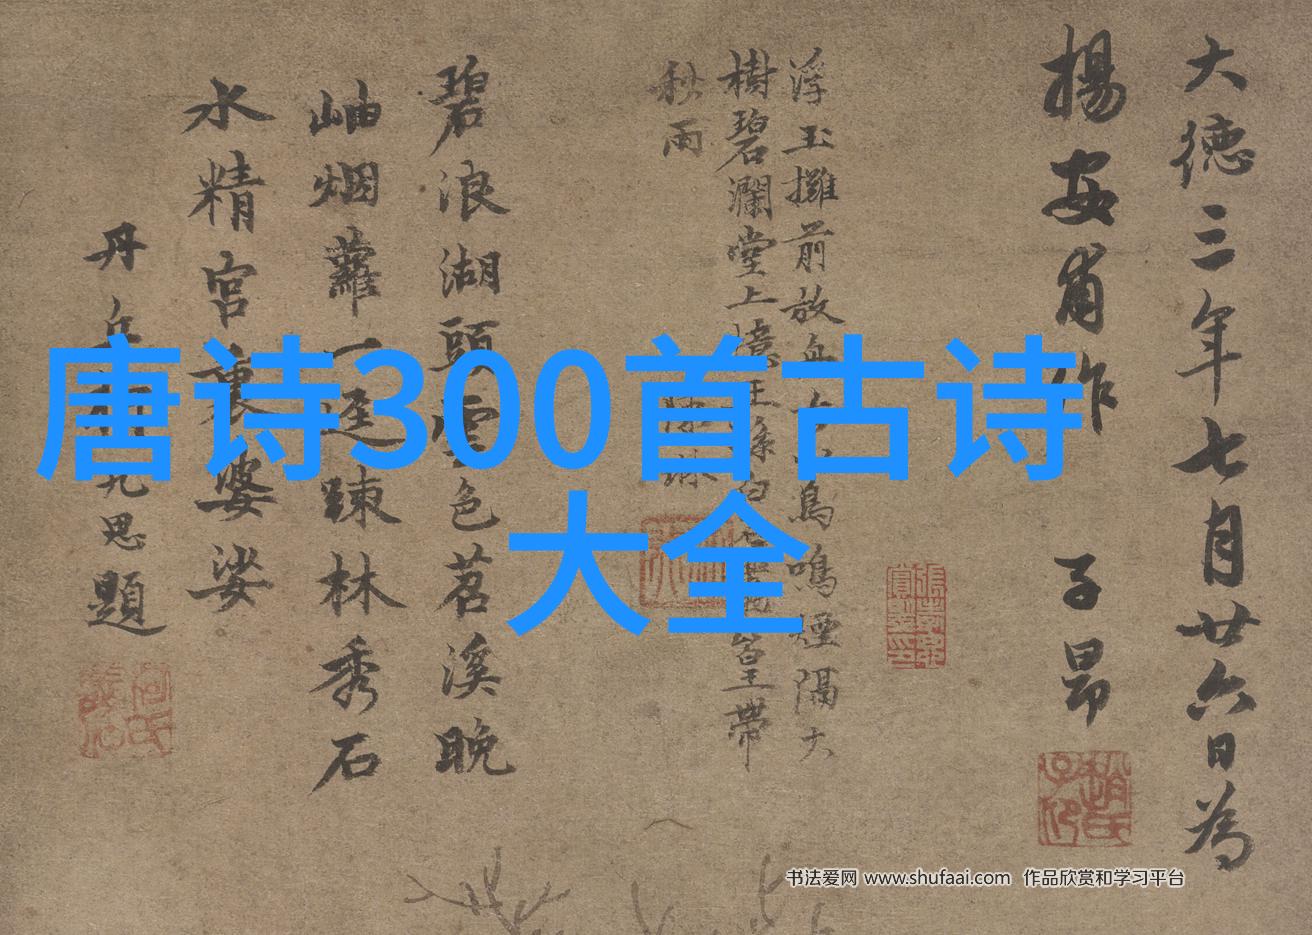 大德三年七月廿六日為
揚安甫作 子昂
浮玉攤前放
鳴煙隔大
樹碧瀾堂上憶王
皇帶
秋雨
碧浪湖頭雲色苕溪晚
岫烟蘿一逕踈林秀石
水精宮裏婆娑
丹丘
九思題
唐诗300首古诗
大全
书法爱网 www.shufaai.com 作品欣赏和学习平台